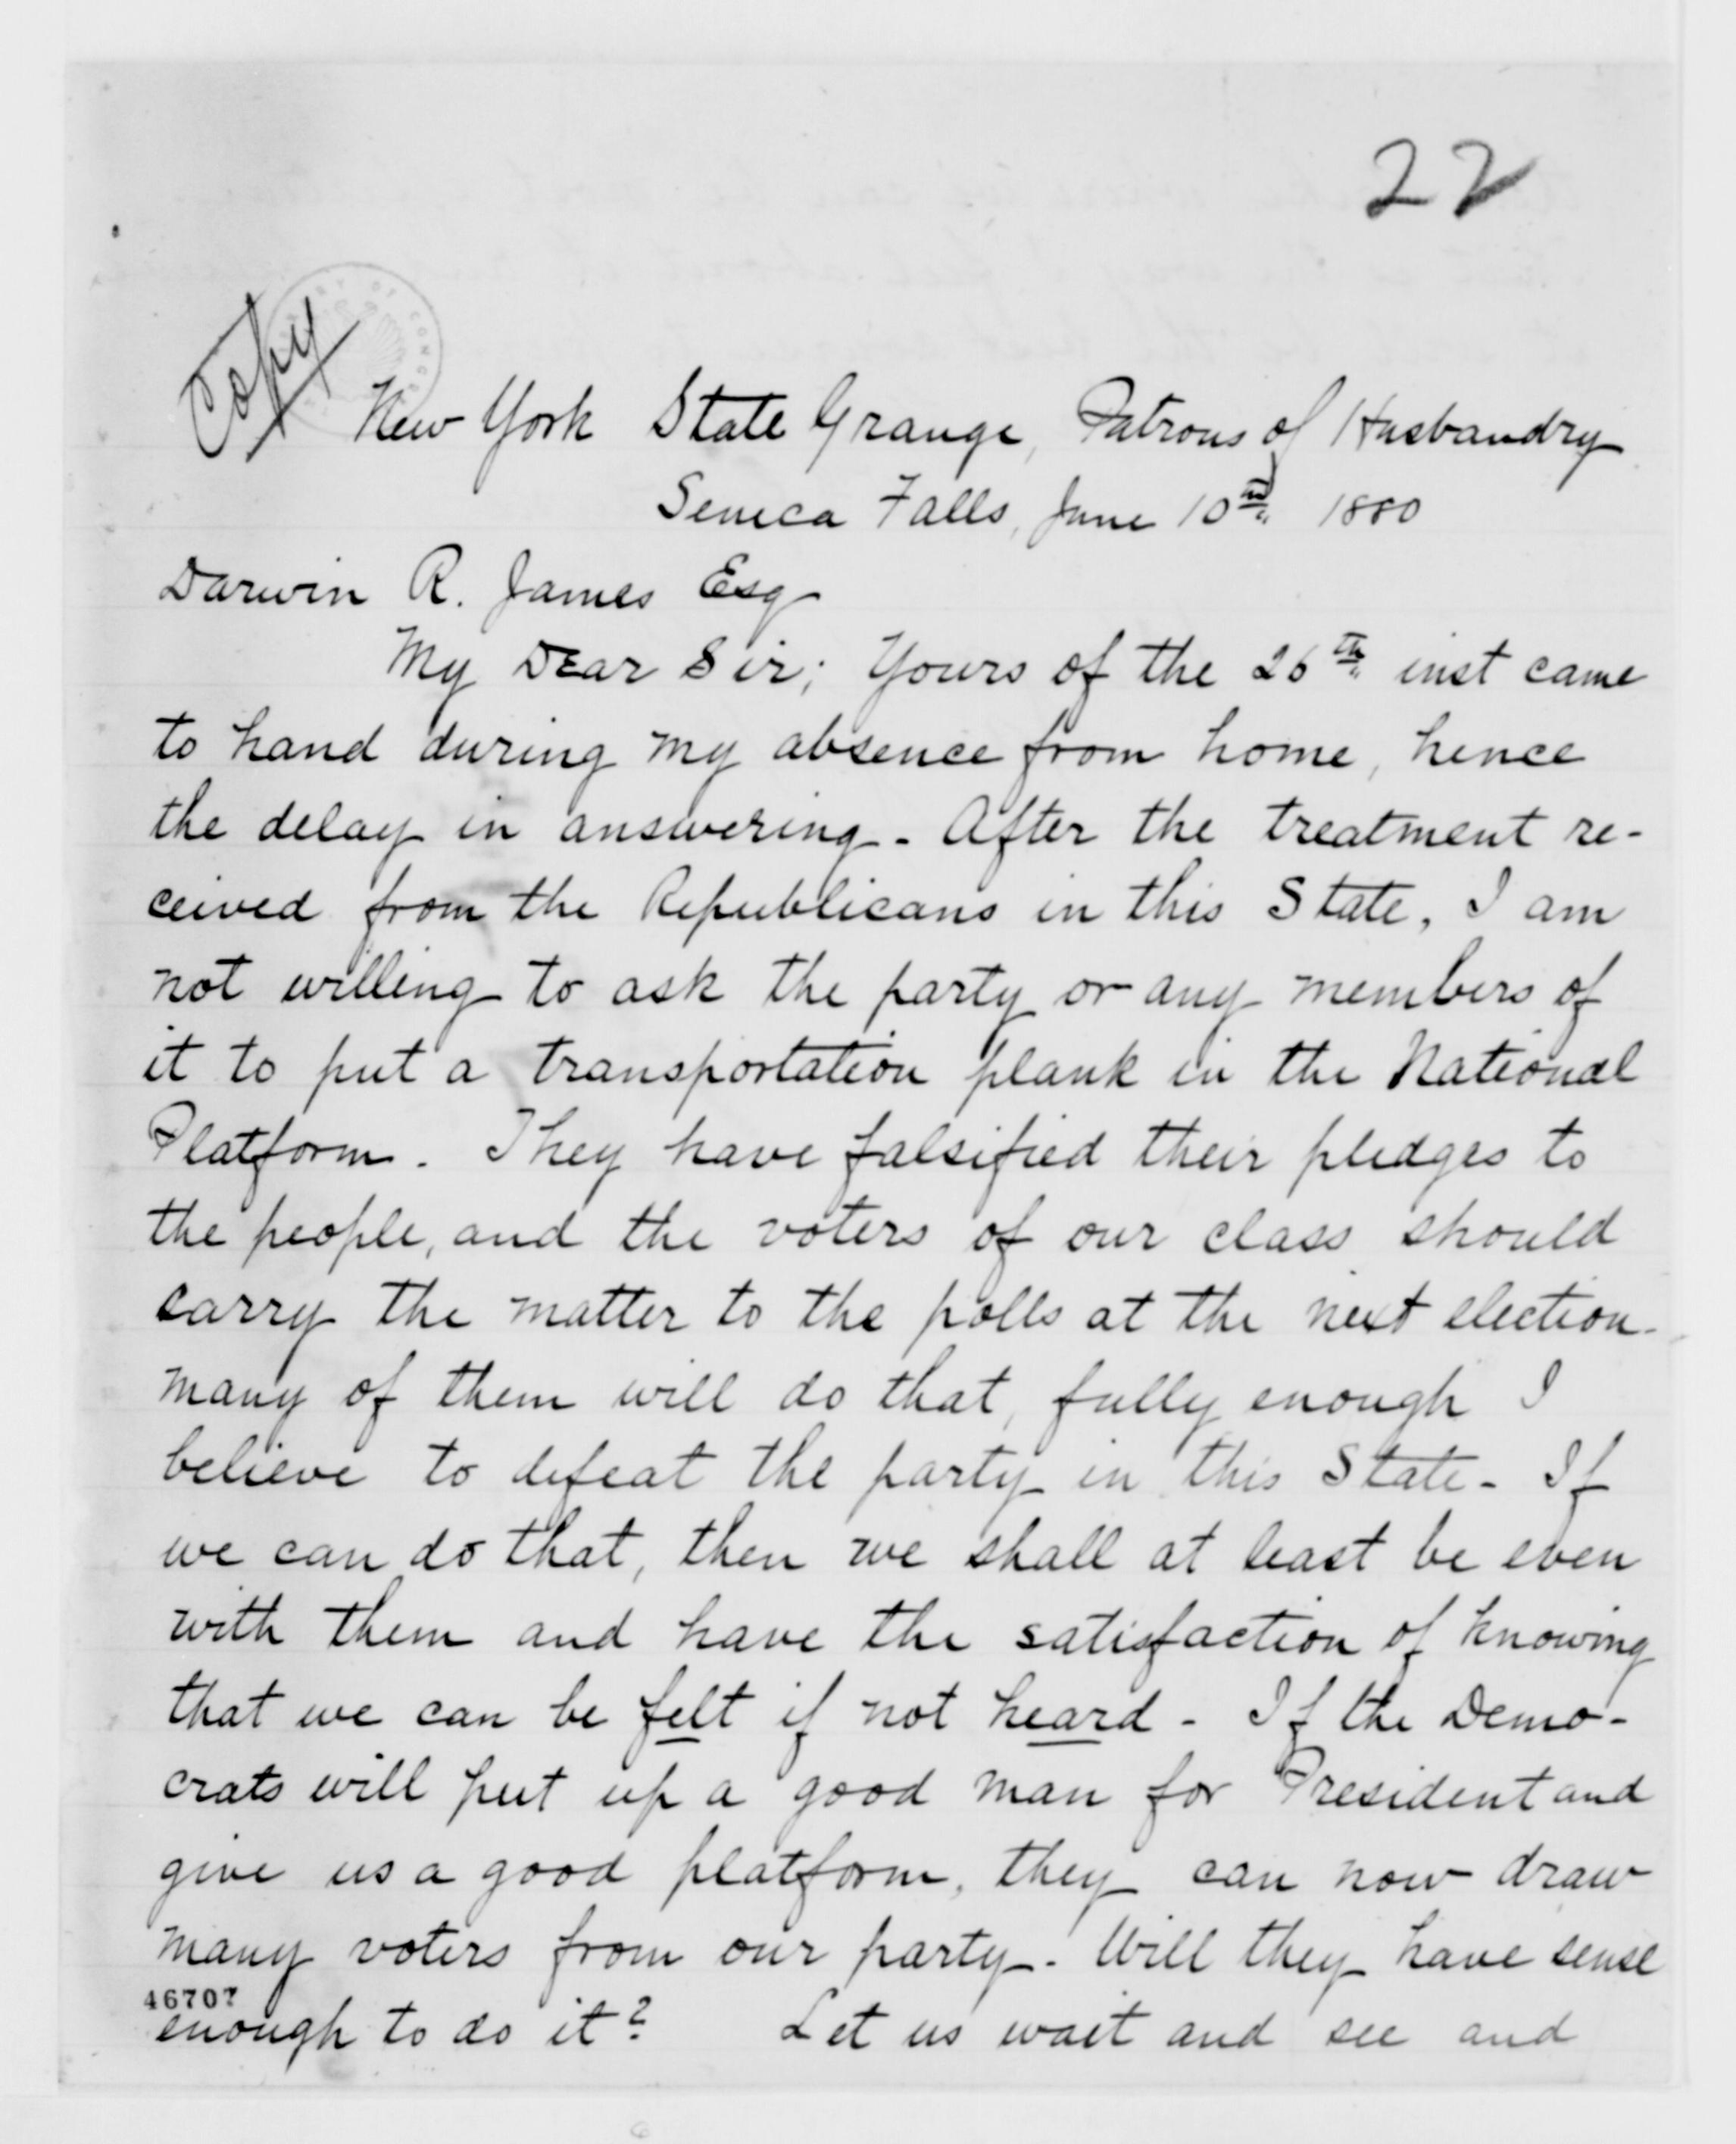 22
Copy
New York State Grange, Patrons of Husbandry
Seneca Falls, June 10th 1880
Darwin R. James Esq
My Dear Sir; Yours of the 26th inst came
to hand during my absence from home, hence
the delay in answering - After the treatment re-
ceived from the Republicans in this State, I am
not willing to ask the party or any members of
it to put a transportation plank in the National
Platform. They have falsified their pledges to
the people, and the voters of our class should
carry the matter to the polls at the next election.
many of them will do that, fully enough I
believe to defeat the party in this State - If
we can do that, then we shall at least be even
with them and have the satisfaction of knowing
that we can be felt if not heard - If the Demo-
crats will put up a good man for President and
give us a good platform, they can now draw
many voters from our party - Will they have sense
46707
enough to do it? Let us wait and see and